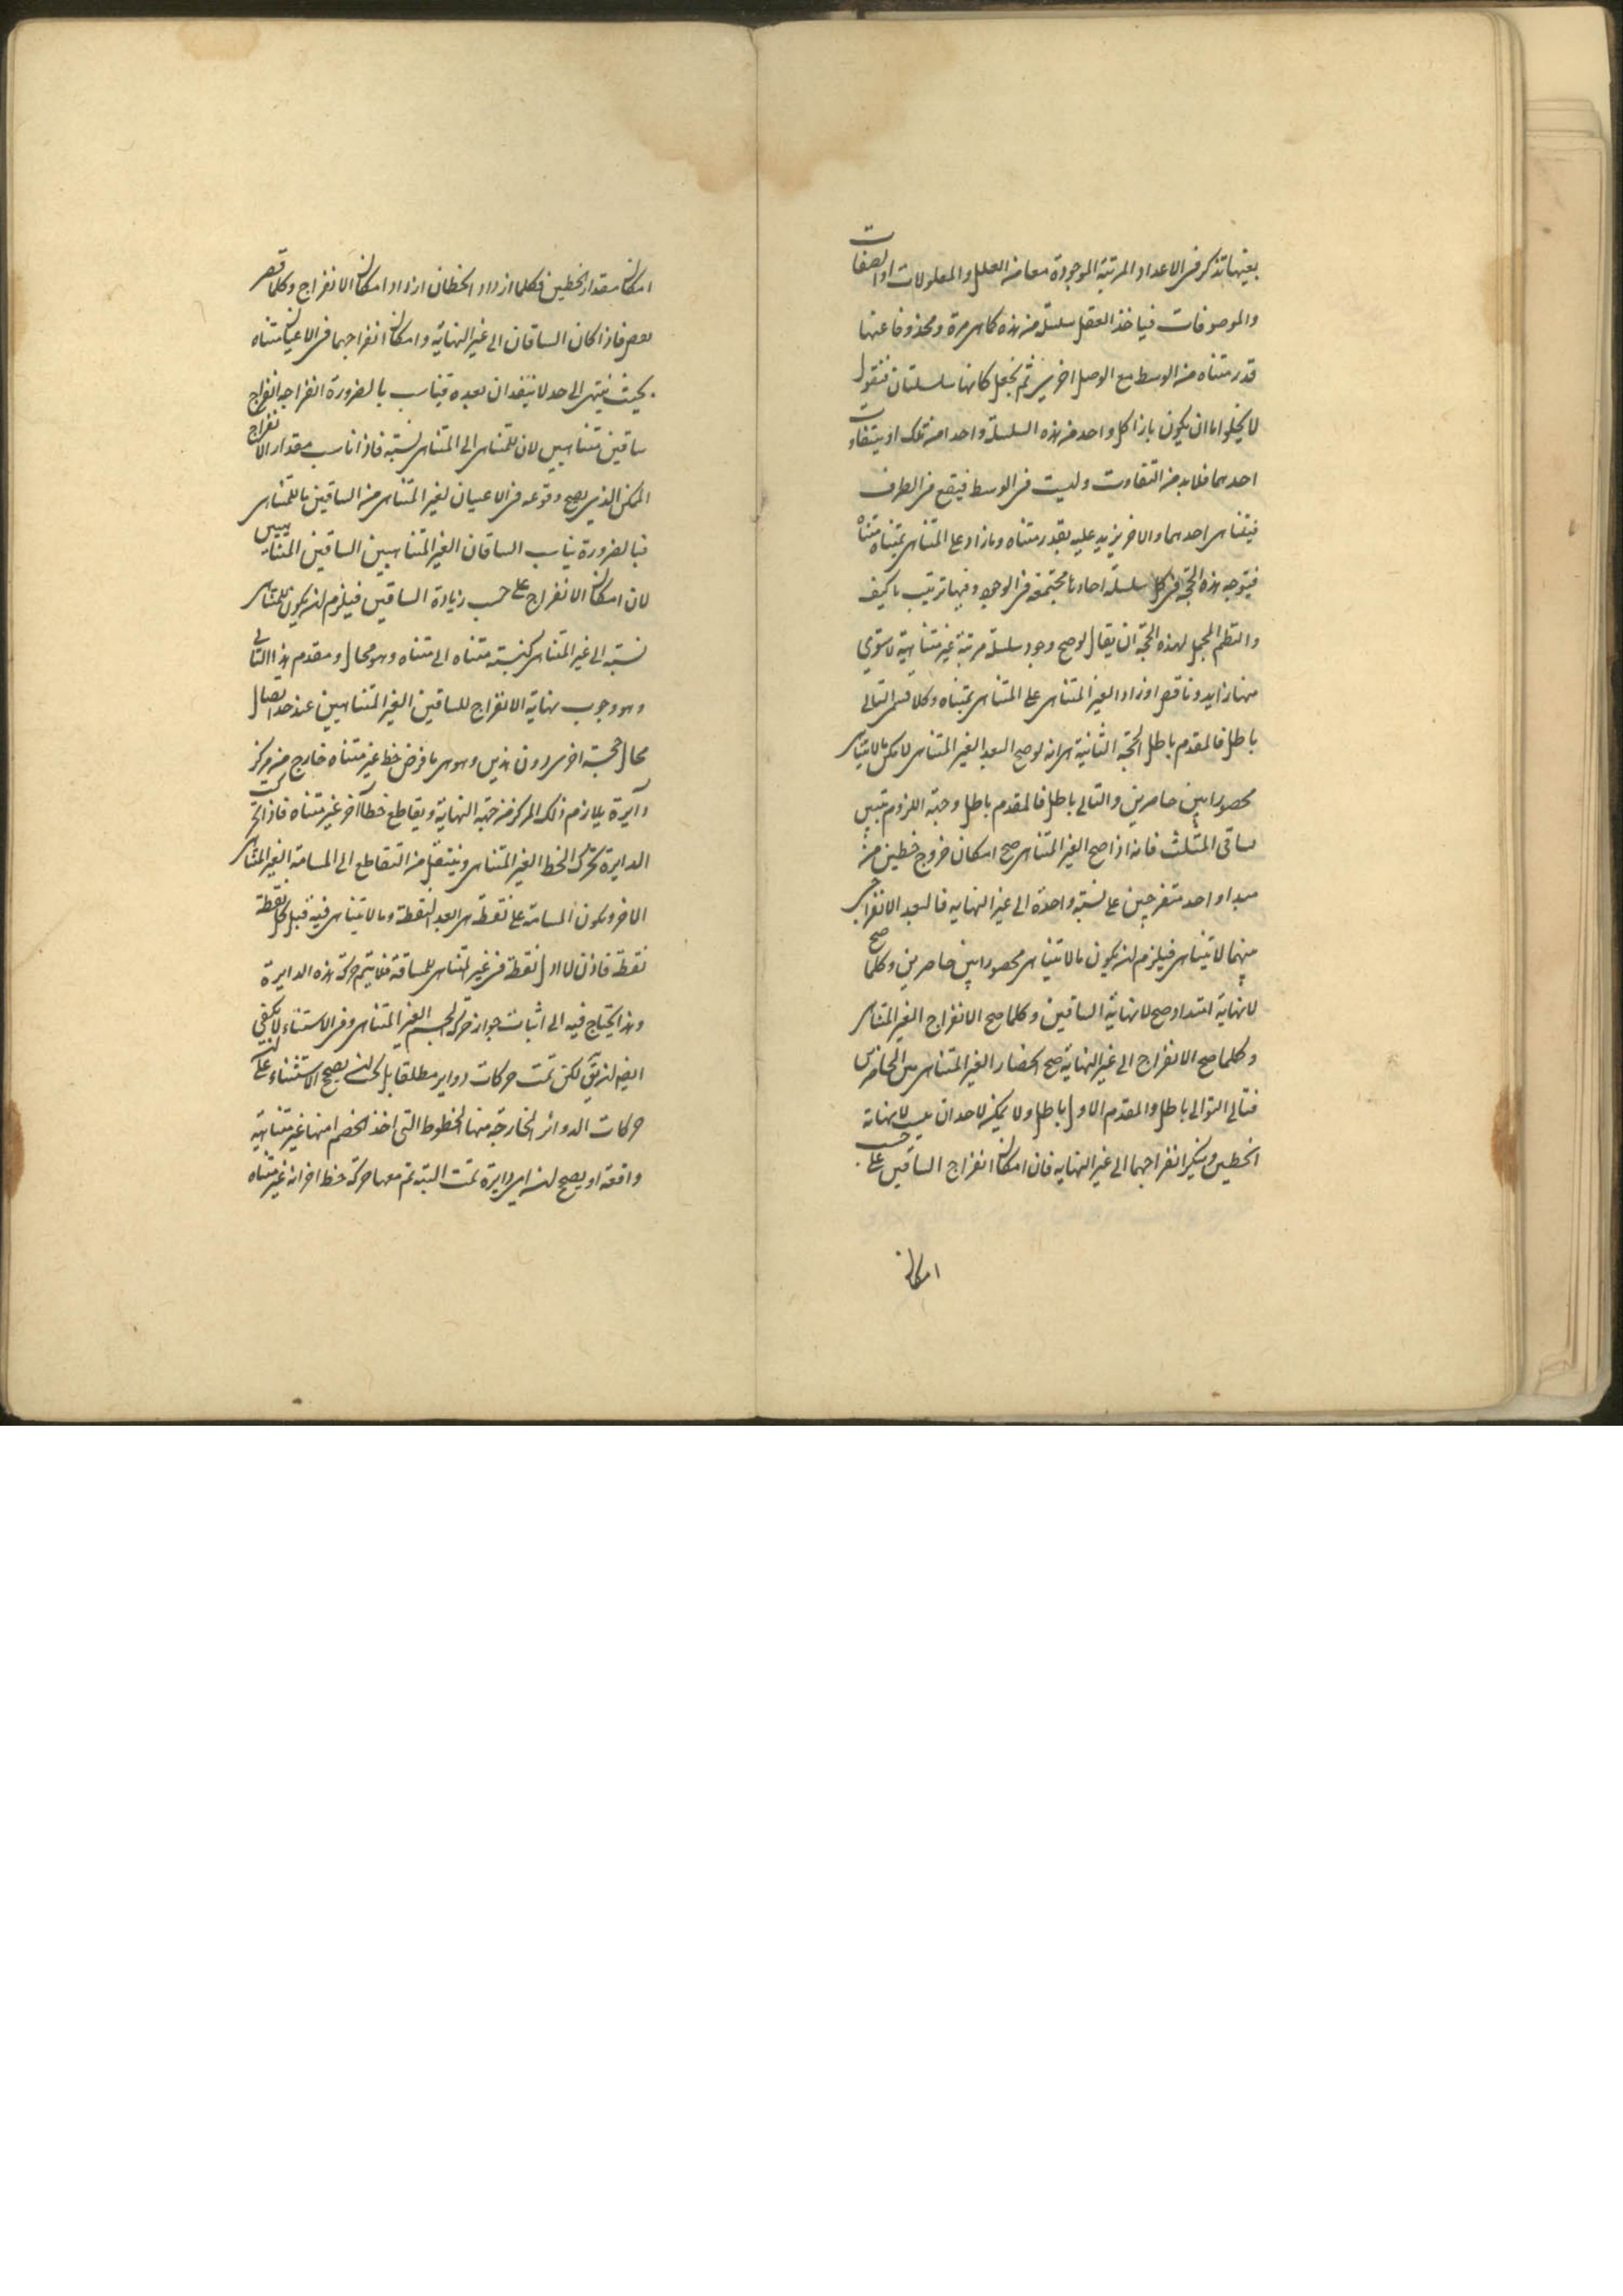 بعينها تذكر في الاعداد المرتبة الموجودة معا من العلل والمعلولات او الصفات
والموصوفات فياخذ العقل سلسلة من هذه كاهى مرة ومحذوفا عنها
قدر متناه من الوسط مع الوصل اخرى ثم نجعل كانها سلسلتان فنقول
لا يخلوا اما ان يكون بازا كل واحد من هذه السلسلة واحدا من تلك او يتفاوت
احدهما فلابد من التفاوت وليت في الوسط فيقع في الطرف
فيتناهى احدهما والاخر يزيد عليه بقدر متناه وما زاد على المتناهى بمتناه متناه
فيتوجه هذه الحجة في كل سلسلة احادها مجتمعة في الوجود وفيها ترتيب ما كيف
والنظم المجمل لهذه الحجة ان يقال لو صح وجود سلسلة مرتبة غير متناهية لاستوى
منها زايد وناقص او زاد الغير المتناهى على المتناهى بمتناه وكلا قسمى التالى
باطل فالمقدم باطل الحجة الثانية هى انه لو صح البعد الغير المتناهى لامكن مالا يتناهى
محصورا بين حاصرين والتالى باطل فالمقدم باطل وجهة اللزوم تبين
بساقى المثلث فانه اذا صح الغير المتناهى صح امكان خروج خطين من
مبداء واحد متفرجين على نسبة واحدة الى غير النهايه فالبعد الانفراجى
بينهما لا يتناهى فيلزم ان يكون مالا يتناهى محصورا بين حاصرين وكلما صح
لانهاية امتداد صح لانهاية الساقين وكلما صح الانفراج الغير المتناهى
وكلما صح الانفراج الى غير النهاية صح انحصار الغير المتناهى بين الحاصرين
فتالى التوالى باطل والمقدم الاول باطل ولا يمكن لاحد ان يسلب لانهاية
الخطين وينكر انفراجهما الى غير النهايه فان امكان انفراج الساقين على حسب
امكان
امكان مقدار الخطين فكلما ازداد الخطان ازداد امكان الانفراج وكلما قصر
قصر فاذا كان الساقان الى غير النهاية وامكان انفراجهما في الاعيان متناه
بحيث ينتهى الى حد لا ينفذان بعده فيناسب بالضرورة انفراجه انفراج
ساقين متناهيين لان للمتناهى الى المتناهى نسبة فاذا ناسب مقدار الانفراج
الممكن الذى يصح وقوعه في الاعيان لغير المتناهى من الساقين ما للمتناهى
فبالضرورة يناسب الساقان الغير المتناهيين الساقين المتناهيين
لان امكان الانفراج على حسب زيادة الساقين فيلزم ان يكون للمتناهى
نسبة الى غير المتناهى كنسبة متناه الى متناه وهو محال ومقدم هذا التالى
وهو وجوب نهاية الانفراج للساقين الغير المتناهيين عند حد ايضا
محال حجة اخرى دون هذين وهو هى ما فرض خط غير متناه خارج من مركز
دآيرة يلازم ذلك المركز من جهة النهاية ويقاطع خطا آخر غير متناه فاذا تحركت
الدايرة تحرك الخط الغير المتناهى وينتقل من التقاطع الى المسامتة الغير المتناهى
الاخر ويكون المسامتة على نقطة هى ابعد النقطة ومالا يتناهى فيه قبل كل نقطة
نقطة فاذن لا اول نقطة في غير المتناهى للمسامتة فلا يتم حركة هذه الدايرة
وهذا يحتاج فيه الى اثبات جواز حركة الجسم الغير المتناهى وفي الاستثناء لا يكفى
ايضا ان يق لكن تمت حركات دواير مطلقا بل كان يصح الاستثناء ان على
حركات الدوائر الخارجة منها الخطوط التى اخذ الخصم انها غير متناهية
واقعة او يصح ان اى دايرة تمت البتة تم معها حركة خط اخر انه غير متناه